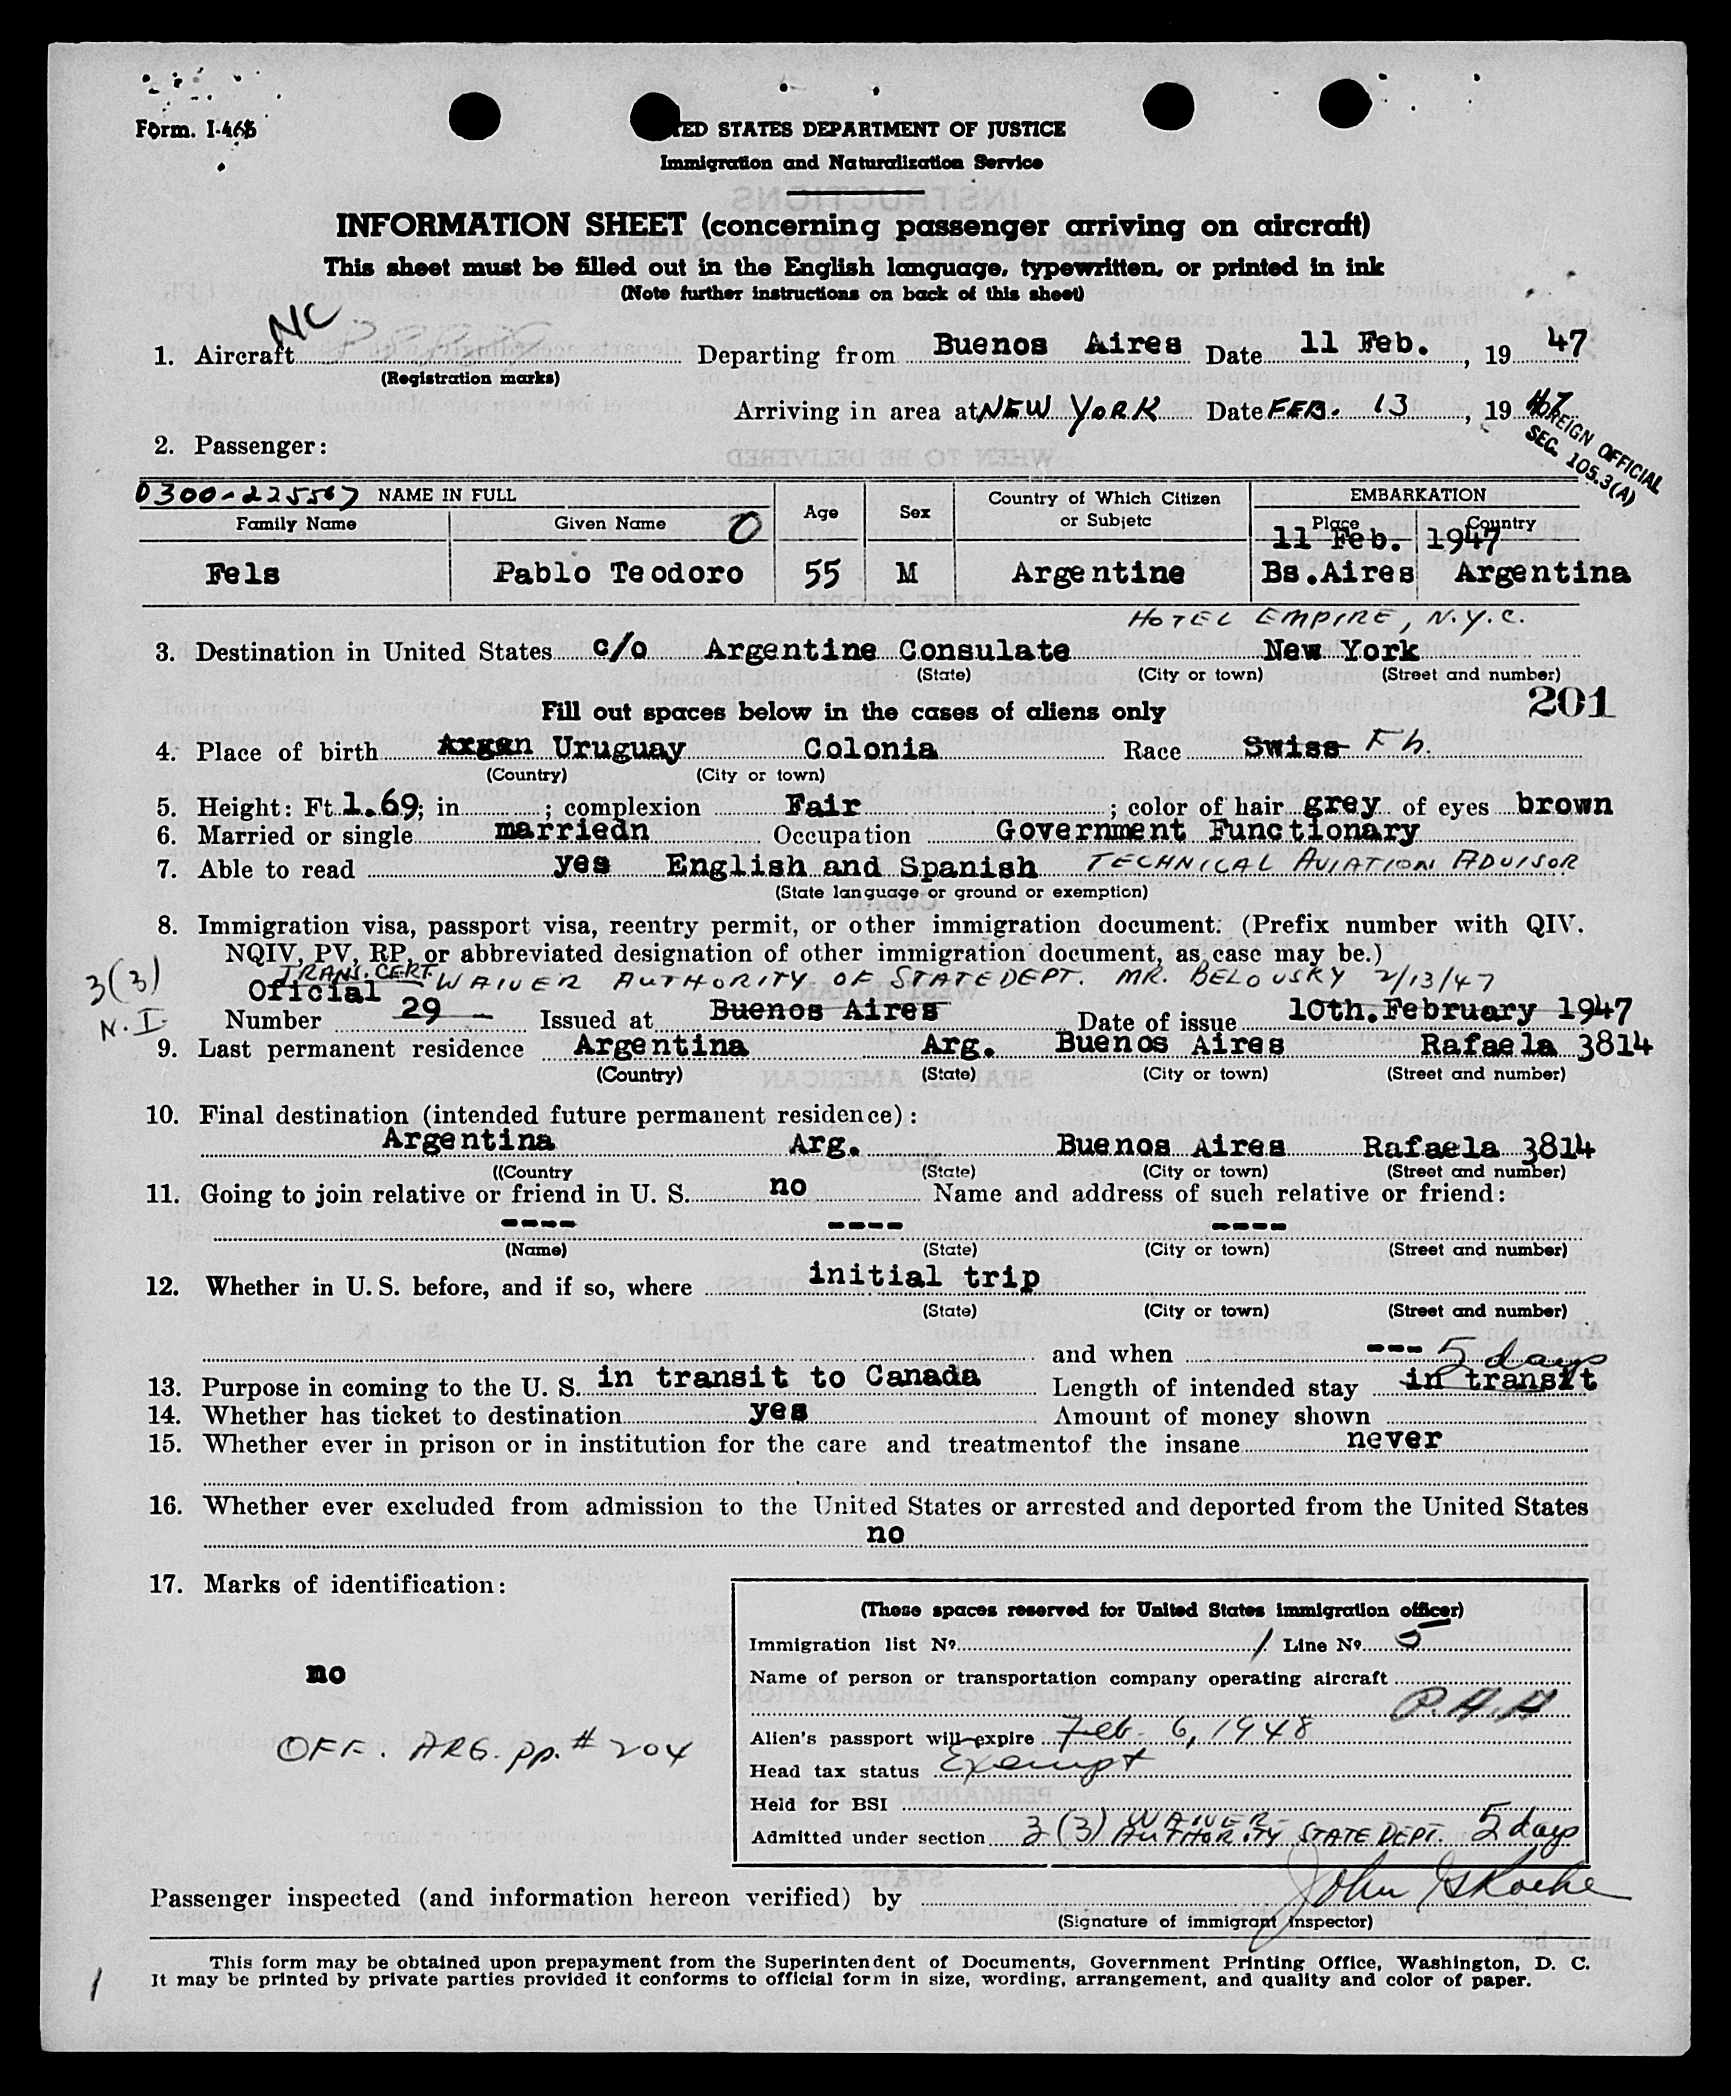 Form. I-466
ED STATES DEPARTMENT OF JUSTICE
Immigration and Naturalization Service
INFORMATION SHEET (concerning passenger arriving on aircraft)
This sheet must be filled out in the English language, typewritten, or printed in ink
(Note further instructions on back of this sheet)
NC
1. Aircraft Departing from Buenos Aires Date 11 Feb. , 19 47
(Registration marks)
Arriving in area at NEW YORK Date FEB. 13 , 19 47
FOREIGN OFFICIAL
SEC. 105.3(A)
2. Passenger:
0300-225567 NAME IN FULL Age Sex Country of Which Citizen or Subjetc EMBARKATION
Family Name Given Name O Place Country
11 Feb. 1947
Fels Pablo Teodoro 55 M Argentine Bs.Aires Argentina
HOTEL EMPIRE, N.Y.C.
3. Destination in United States c/o Argentine Consulate New York
(State) (City or town) (Street and number)
Fill out spaces below in the cases of aliens only 201
4. Place of birth Argen Uruguay Colonia Race Swiss Fh.
(Country) (City or town)
5. Height: Ft. 1.69; in ; complexion Fair ; color of hair grey of eyes brown
6. Married or single marriedn Occupation Government Functionary
7. Able to read yes English and Spanish TECHNICAL AVIATION ADVISOR
(State language or ground or exemption)
8. Immigration visa, passport visa, reentry permit, or other immigration document: (Prefix number with QIV.
NQIV, PV, RP, or abbreviated designation of other immigration document, as case may be.)
3(3) TRANS. CERT. WAIVER AUTHORITY OF STATE DEPT. MR. BELOUSKY 2/13/47
Oficial
N.I. Number 29 - Issued at Buenos Aires Date of issue 10th.February 1947
9. Last permanent residence Argentina Arg. Buenos Aires Rafaela 3814
(Country) (State) (City or town) (Street and number)
10. Final destination (intended future permanent residence):
Argentina Arg. Buenos Aires Rafaela 3814
((Country (State) (City or town) (Street and number)
11. Going to join relative or friend in U. S. no Name and address of such relative or friend:
---- ---- ----
(Name) (State) (City or town) (Street and number)
12. Whether in U. S. before, and if so, where initial trip
(State) (City or town) (Street and number)
and when --- 5 days
13. Purpose in coming to the U. S. in transit to Canada Length of intended stay in transit
14. Whether has ticket to destination yes Amount of money shown
15. Whether ever in prison or in institution for the care and treatmentof the insane never
16. Whether ever excluded from admission to the United States or arrested and deported from the United States
no
17. Marks of identification:
no
OFF. ARG. pp. # 204
(These spaces reserved for United States immigration officer)
Immigration list No. 1 Line No. 5
Name of person or transportation company operating aircraft
P.A.A
Alien's passport will expire Feb. 6, 1948
Head tax status Exempt
Held for BSI
Admitted under section 3(3) WAIVER AUTHORITY STATE DEPT. 5 days
Passenger inspected (and information hereon verified) by John
(Signature of immigrant inspector)
This form may be obtained upon prepayment from the Superintendent of Documents, Government Printing Office, Washington, D. C.
It may be printed by private parties provided it conforms to official form in size, wording, arrangement, and quality and color of paper.
1